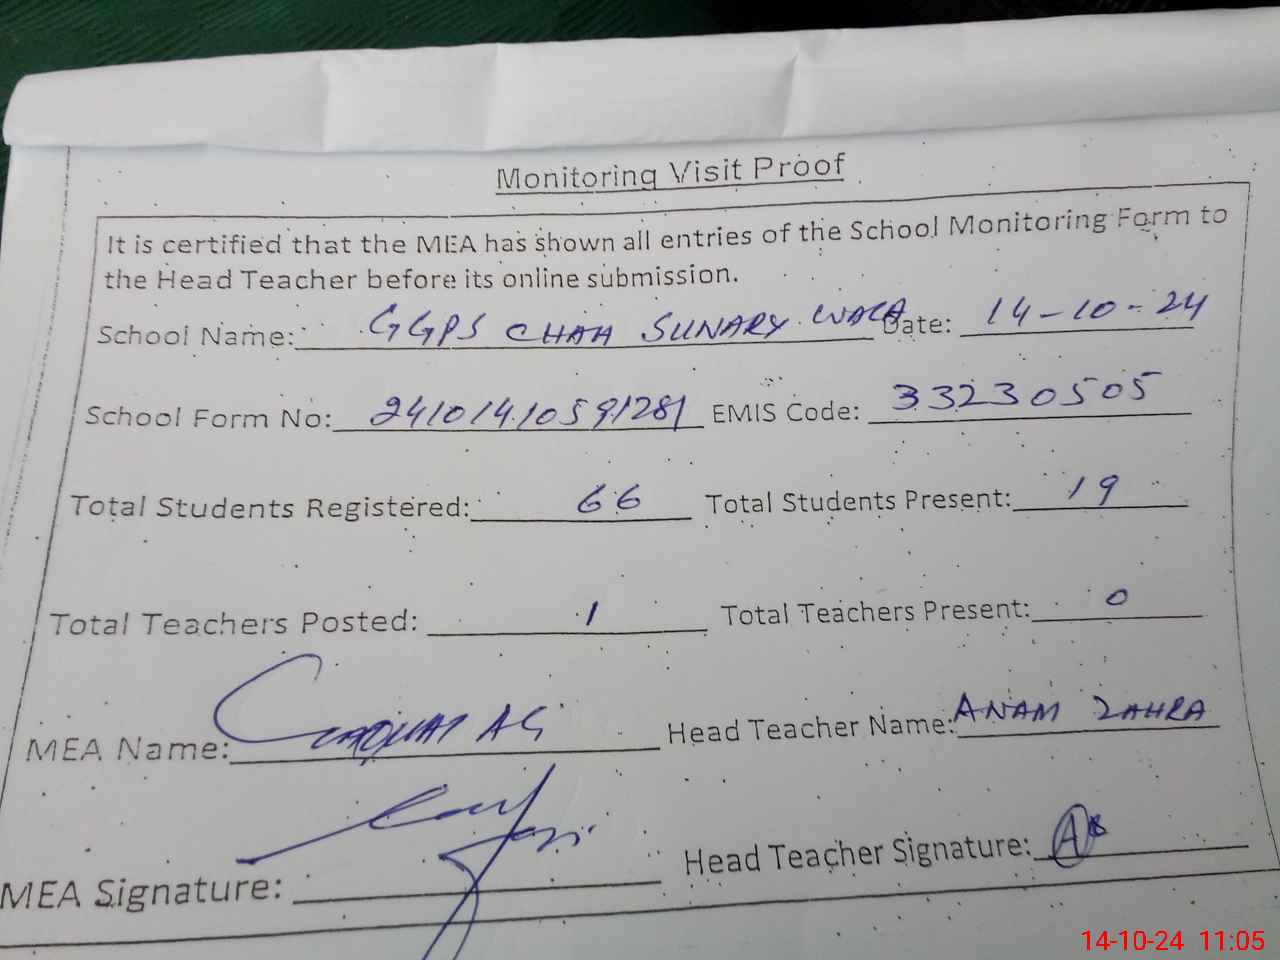 Monitoring Visit Proof
It is certified that the MEA has shown all entries of the School Monitoring Form to
the Head Teacher before its online submission.
School Name: GGPS CHAH SUNARY WALA Date: 14-10-24
School Form No: 24101410591281 EMIS Code: 33230505
Total Students Registered: 66 Total Students Present: 19
Total Teachers Posted: 1 Total Teachers Present: 0
MEA Name: Head Teacher Name: ANAM ZAHRA
MEA Signature: Head Teacher Signature:
14-10-24 11:05